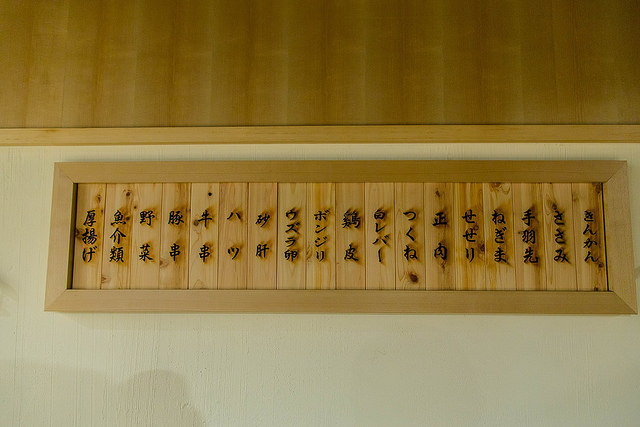 きんかん
ささみ
手羽先
ねぎま
せせり
正肉
つくね
白レバー
鶏皮
ボンジリ
ウズラ卵
砂肝
ハツ
牛串
豚串
野菜
魚介類
厚揚げ